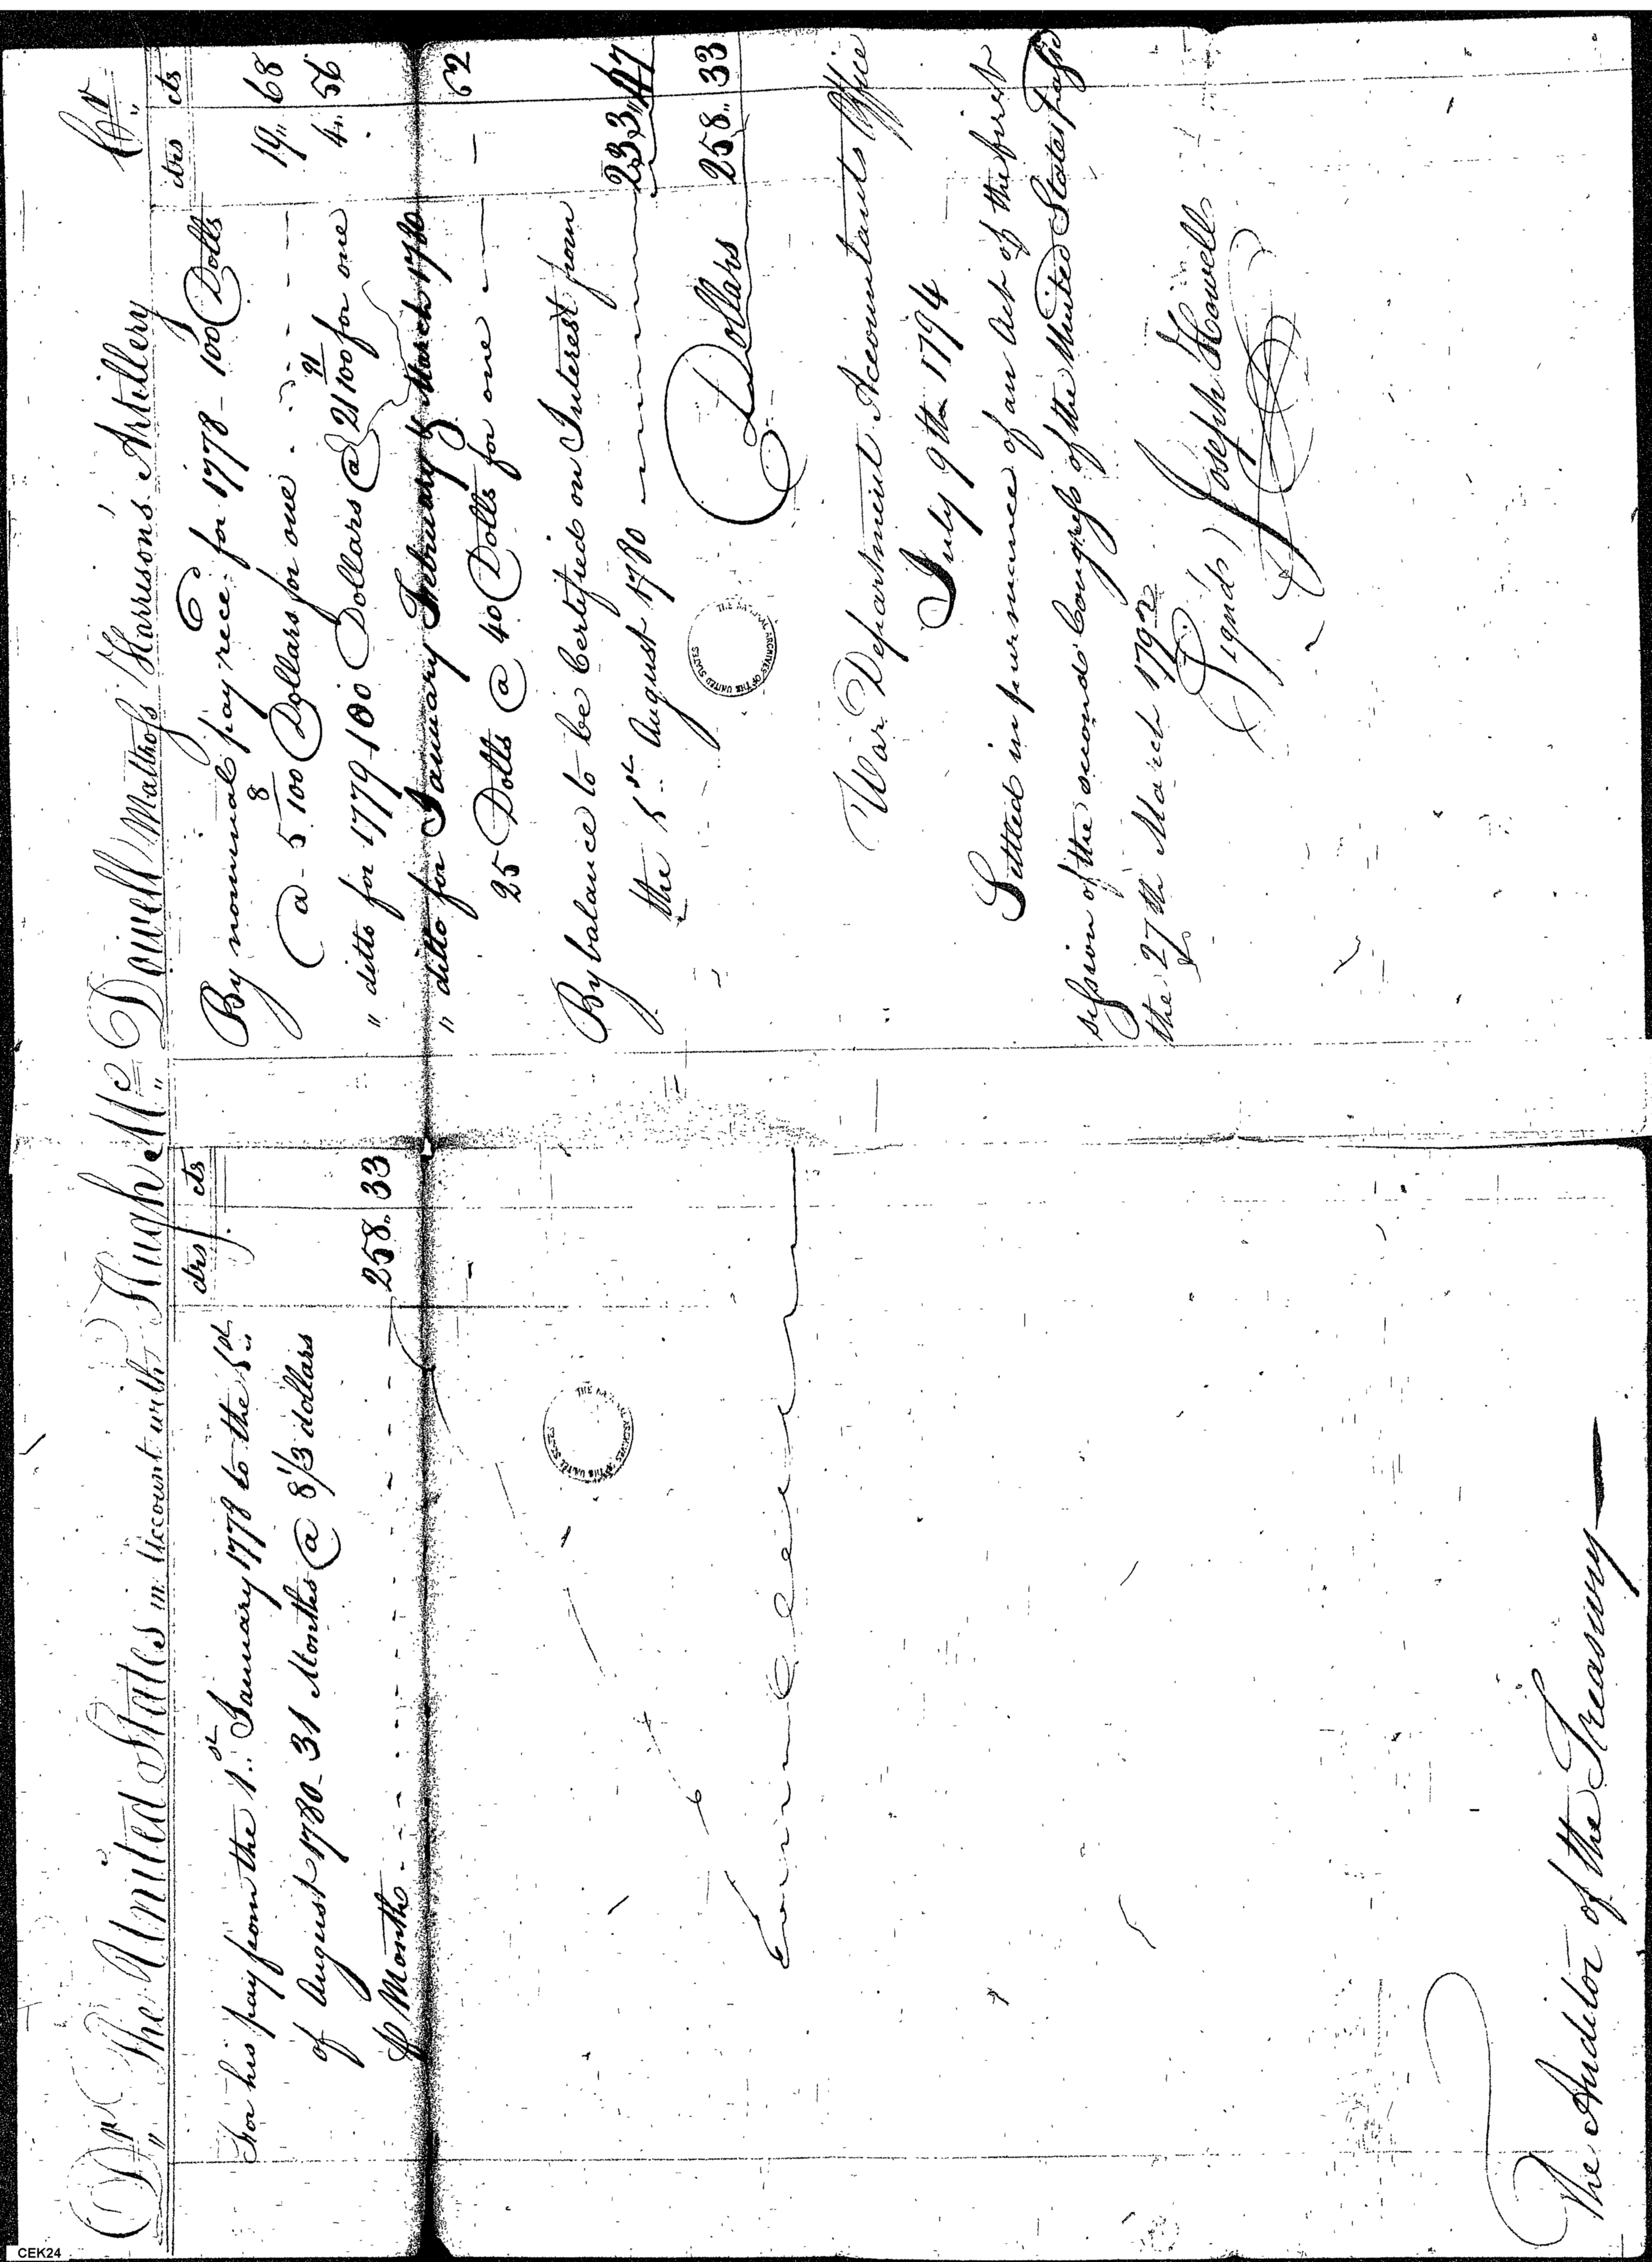 Dr The United States in Account with Hugh Mc Dowell Mattross Harrison's Artillery Cr
drs cts
For his pay from the 1st January 1778 to the 1st
of August 1780 - 31 Months @ 8 1/3 dollars
Months 258.. 33
The Auditor of the Treasury
drs cts
By nominal pay recd for 1778 - 100 Dolls
@ 5 8/100 Dollars for one 19.. 68
" ditto for 1779 - 100 Dollars @ 21 91/100 for one 4.. 56
" ditto for January February & March 1780
25 Dolls @ 40 Dolls for one — 62
By balance to be Certified on Interest from
the 1st August 1780 233.. 47
Dollars 258.. 33
War Department Accountants Office
July 9th 1794
Settled in pursuance of an Act of the first
session of the second Congress of the United States passed
the 27th March 1792
(Signed) Joseph Howell
THE NATIONAL ARCHIVES OF THE UNITED STATES
THE NATIONAL ARCHIVES OF THE UNITED STATES
CEK24